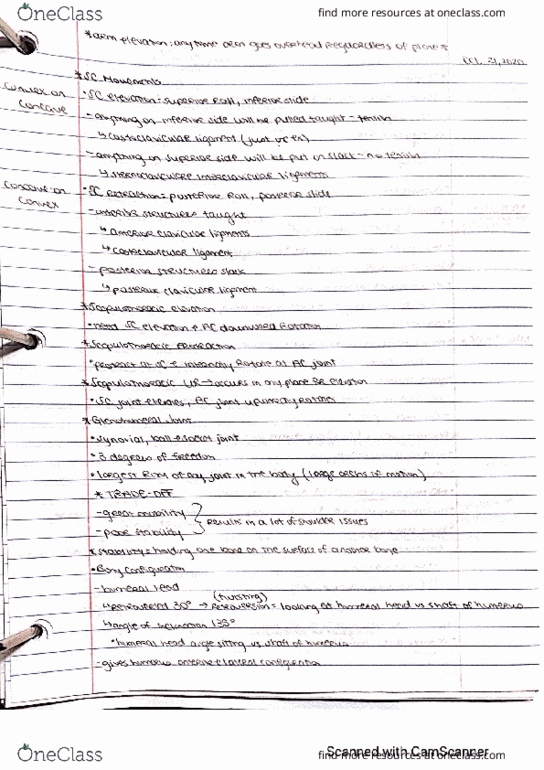 OneClass
find more resources at oneclass.com
*arm elevation: any time arm goes overhead regardless of plane*
Oct. 21, 2020
*SC Movements
Convex on Concave
•SC elevation = superior roll, inferior slide
-anything on inferior side will be pulled taught - tension
↳costoclavicular ligament
-anything on superior side will be put on slack - no tension
↳ interclavicular ligaments
Concave on Convex
•SC retraction = posterior roll, posterior slide
-anterior structures taught
↳ anterior clavicular ligaments
↳ costoclavicular ligament
-posterior structures slack
↳ posterior clavicular ligament
*Scapulothoracic elevation
•need SC elevation + AC downward rotation
*Scapulothoracic protraction
•protract at SC + internally rotate at AC joint
*Scapulothoracic UR → occurs in any plane elevation
•SC joint elevates, AC joint upwardly rotates
*Glenohumeral Joint
•synovial, ball + socket joint
•3 degrees of freedom
•largest ROM of any joint in the body (large arcs of motion)
* TRADE-OFF
-great mobility
-poor stability
results in a lot of shoulder issues
*stability = holding one bone on the surface of another bone
•Bony configuration
-humeral head
(twisting)
↳retroverted 30° → retroversion = looking at humeral head vs shaft of humerus
↳angle of inclination 135°
•humeral head angle sitting vs shaft of humerus
-gives humerus configuration
OneClass
Scanned with CamScanner
find more resources at oneclass.com